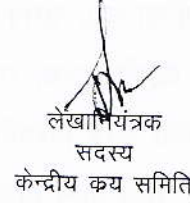 लेखानियंत्रक
सदस्य
केन्द्रीय कय समिति